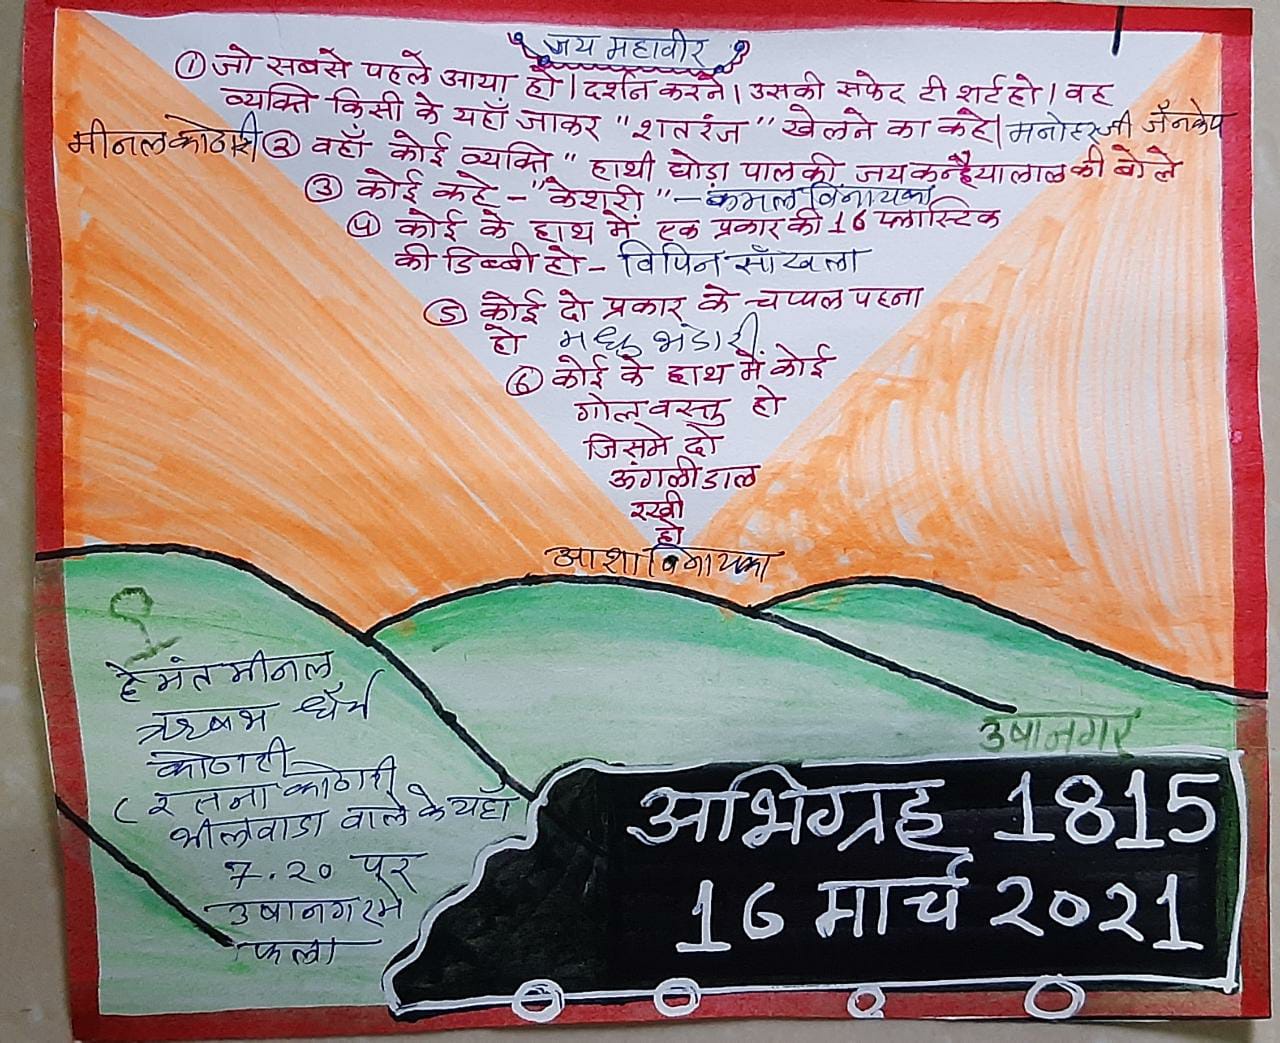 जय महावीर
① जो सबसे पहले आया हो। दर्शन करने। उसकी सफेद टी शर्ट हो। वह
व्यक्ति किसी के यहाँ जाकर "शतरंज" खेलने का कहे। मनोहरजी
मीनल कोठारी ② वहाँ कोई व्यक्ति "हाथी घोड़ा पालकी जय कन्हैयालाल की बोले
③ कोई कहे - "केशरी" - कमल विनायका
④ कोई के हाथ में एक प्रकार की 16 प्लास्टिक
की डिब्बी हो - विपिन साँखला
⑤ कोई दो प्रकार के चप्पल पहना
हो मधु भंडारी
⑥ कोई के हाथ में कोई
गोल वस्तु हो
जिसमे दो
ऊंगली डाल
रखी
हो
आशा विनायका
हेमंत मीनल
ऋषभ धैर्य
कोठारी
( रतना कोठारी
भीलवाडा वाले के यहाँ
7.20 पर
उषानगर मे
फला
उषानगर
अभिग्रह 1815
16 मार्च 2021